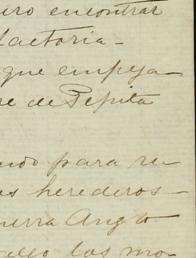 uro encontrar
factoria -
que empeza-
re de Pepita
ando para re
os herederos -
uerra Anglo
ello los mo-